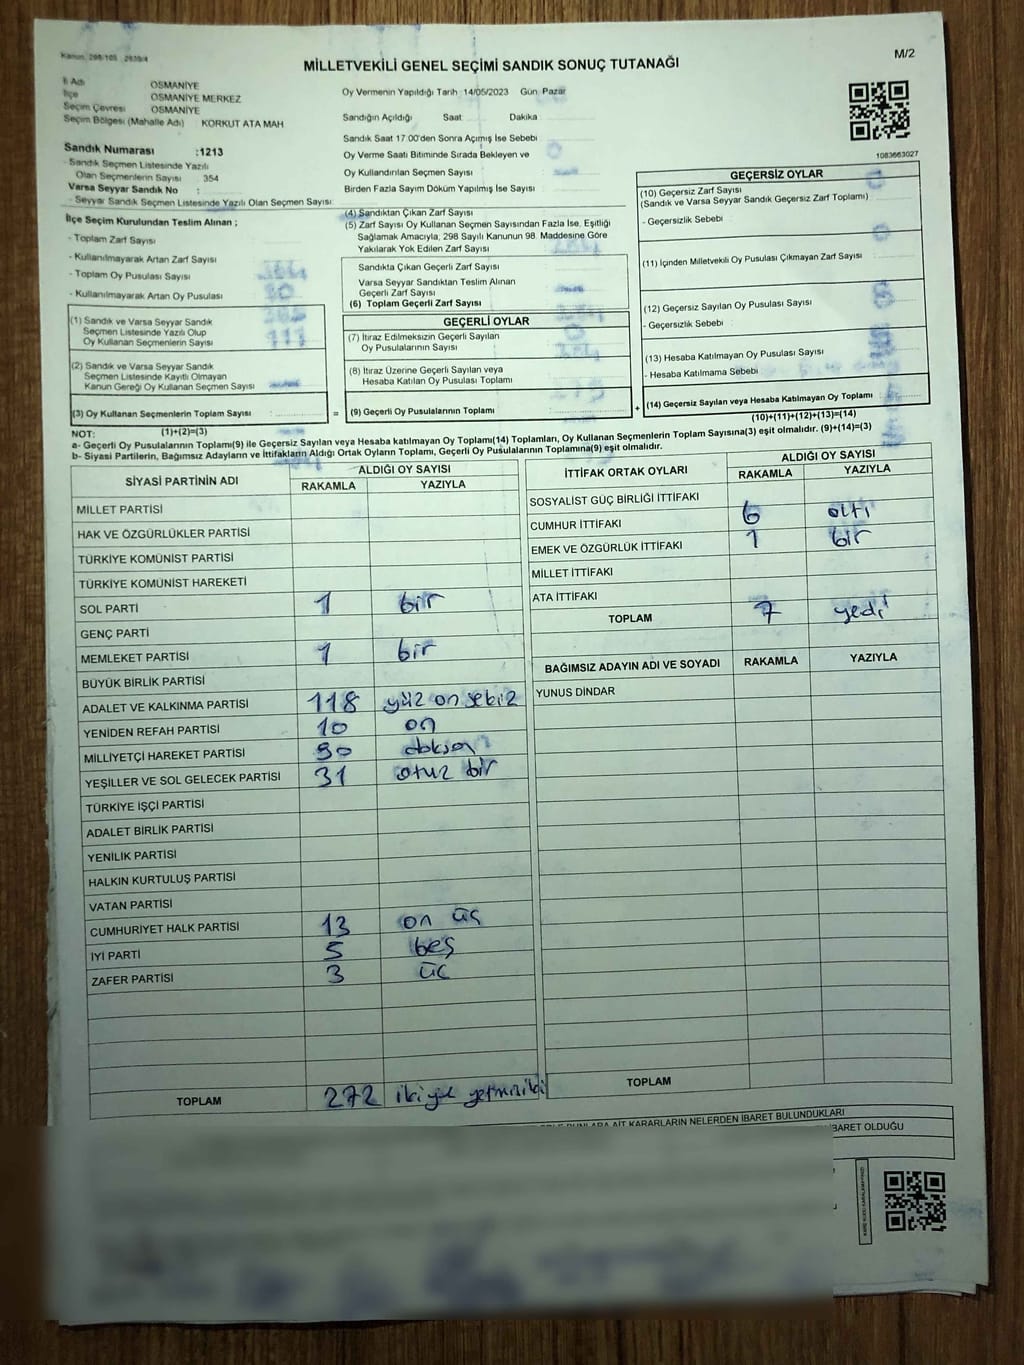 Kanun: 298/105 - 2839/4
M/2
MİLLETVEKİLİ GENEL SEÇİMİ SANDIK SONUÇ TUTANAĞI
İl Adı OSMANİYE
İlçe OSMANİYE MERKEZ
Seçim Çevresi OSMANİYE
Seçim Bölgesi (Mahalle Adı) KORKUT ATA MAH
Sandık Numarası :1213
- Sandık Seçmen Listesinde Yazılı
Olan Seçmenlerin Sayısı 354
Varsa Seyyar Sandık No :
- Seyyar Sandık Seçmen Listesinde Yazılı Olan Seçmen Sayısı:
Oy Vermenin Yapıldığı Tarih 14/05/2023 Gün Pazar
Sandığın Açıldığı Saat Dakika
Sandık Saat 17 00'den Sonra Açımış İse Sebebi
Oy Verme Saati Bitiminde Sırada Bekleyen ve
Oy Kullandırılan Seçmen Sayısı
Birden Fazla Sayım Döküm Yapılmış İse Sayısı
1083663027
İlçe Seçim Kurulundan Teslim Alınan ;
- Toplam Zarf Sayısı
- Kullanılmayarak Artan Zarf Sayısı
- Toplam Oy Pusulası Sayısı
- Kullanılmayarak Artan Oy Pusulası
(1) Sandık ve Varsa Seyyar Sandık
Seçmen Listesinde Yazılı Olup
Oy Kullanan Seçmenlerin Sayısı
(2) Sandık ve Varsa Seyyar Sandık
Seçmen Listesinde Kayıtlı Olmayan
Kanun Gereği Oy Kullanan Seçmen Sayısı
(3) Oy Kullanan Seçmenlerin Toplam Sayısı :
(4) Sandıktan Çıkan Zarf Sayısı
(5) Zarf Sayısı Oy Kullanan Seçmen Sayısından Fazla İse, Eşitliği
Sağlamak Amacıyla, 298 Sayılı Kanunun 98. Maddesine Göre
Yakılarak Yok Edilen Zarf Sayısı
Sandıkta Çıkan Geçerli Zarf Sayısı
Varsa Seyyar Sandıktan Teslim Alınan
Geçerli Zarf Sayısı
(6) Toplam Geçerli Zarf Sayısı
GEÇERLİ OYLAR
(7) İtiraz Edilmeksizin Geçerli Sayılan
Oy Pusulalarının Sayısı
(8) İtiraz Üzerine Geçerli Sayılan veya
Hesaba Katılan Oy Pusulası Toplamı
= (9) Geçerli Oy Pusulalarının Toplamı
GEÇERSİZ OYLAR
(10) Geçersiz Zarf Sayısı
(Sandık ve Varsa Seyyar Sandık Geçersiz Zarf Toplamı)
- Geçersizlik Sebebi :
(11) İçinden Milletvekili Oy Pusulası Çıkmayan Zarf Sayısı
(12) Geçersiz Sayılan Oy Pusulası Sayısı
- Geçersizlik Sebebi
(13) Hesaba Katılmayan Oy Pusulası Sayısı
- Hesaba Katılmama Sebebi
+ (14) Geçersiz Sayılan veya Hesaba Katılmayan Oy Toplamı
(1)+(2)=(3)
(10)+(11)+(12)+(13)=(14)
NOT:
a- Geçerli Oy Pusulalarının Toplamı(9) ile Geçersiz Sayılan veya Hesaba katılmayan Oy Toplamı(14) Toplamları, Oy Kullanan Seçmenlerin Toplam Sayısına(3) eşit olmalıdır. (9)+(14)=(3)
b- Siyasi Partilerin, Bağımsız Adayların ve İttifakların Aldığı Ortak Oyların Toplamı, Geçerli Oy Pusulalarının Toplamına(9) eşit olmalıdır.
SİYASİ PARTİNİN ADI ALDIĞI OY SAYISI
RAKAMLA YAZIYLA
MİLLET PARTİSİ
HAK VE ÖZGÜRLÜKLER PARTİSİ
TÜRKİYE KOMÜNİST PARTİSİ
TÜRKİYE KOMÜNİST HAREKETİ
SOL PARTİ 1 bir
GENÇ PARTİ
MEMLEKET PARTİSİ 1 bir
BÜYÜK BİRLİK PARTİSİ
ADALET VE KALKINMA PARTİSİ 118 yüz on sekiz
YENİDEN REFAH PARTİSİ 10 on
MİLLİYETÇİ HAREKET PARTİSİ 90 doksan
YEŞİLLER VE SOL GELECEK PARTİSİ 31 otuz bir
TÜRKİYE İŞÇİ PARTİSİ
ADALET BİRLİK PARTİSİ
YENİLİK PARTİSİ
HALKIN KURTULUŞ PARTİSİ
VATAN PARTİSİ
CUMHURİYET HALK PARTİSİ 13 on üç
İYİ PARTİ 5 beş
ZAFER PARTİSİ 3 üç
TOPLAM 272 iki yüz yetmiş iki
İTTİFAK ORTAK OYLARI ALDIĞI OY SAYISI
RAKAMLA YAZIYLA
SOSYALİST GÜÇ BİRLİĞİ İTTİFAKI
CUMHUR İTTİFAKI 6 altı
EMEK VE ÖZGÜRLÜK İTTİFAKI 1 bir
MİLLET İTTİFAKI
ATA İTTİFAKI
TOPLAM 7 yedi
BAĞIMSIZ ADAYIN ADI VE SOYADI RAKAMLA YAZIYLA
YUNUS DİNDAR
TOPLAM
BUNLARA AİT KARARLARIN NELERDEN İBARET BULUNDUKLARI
İBARET OLDUĞU